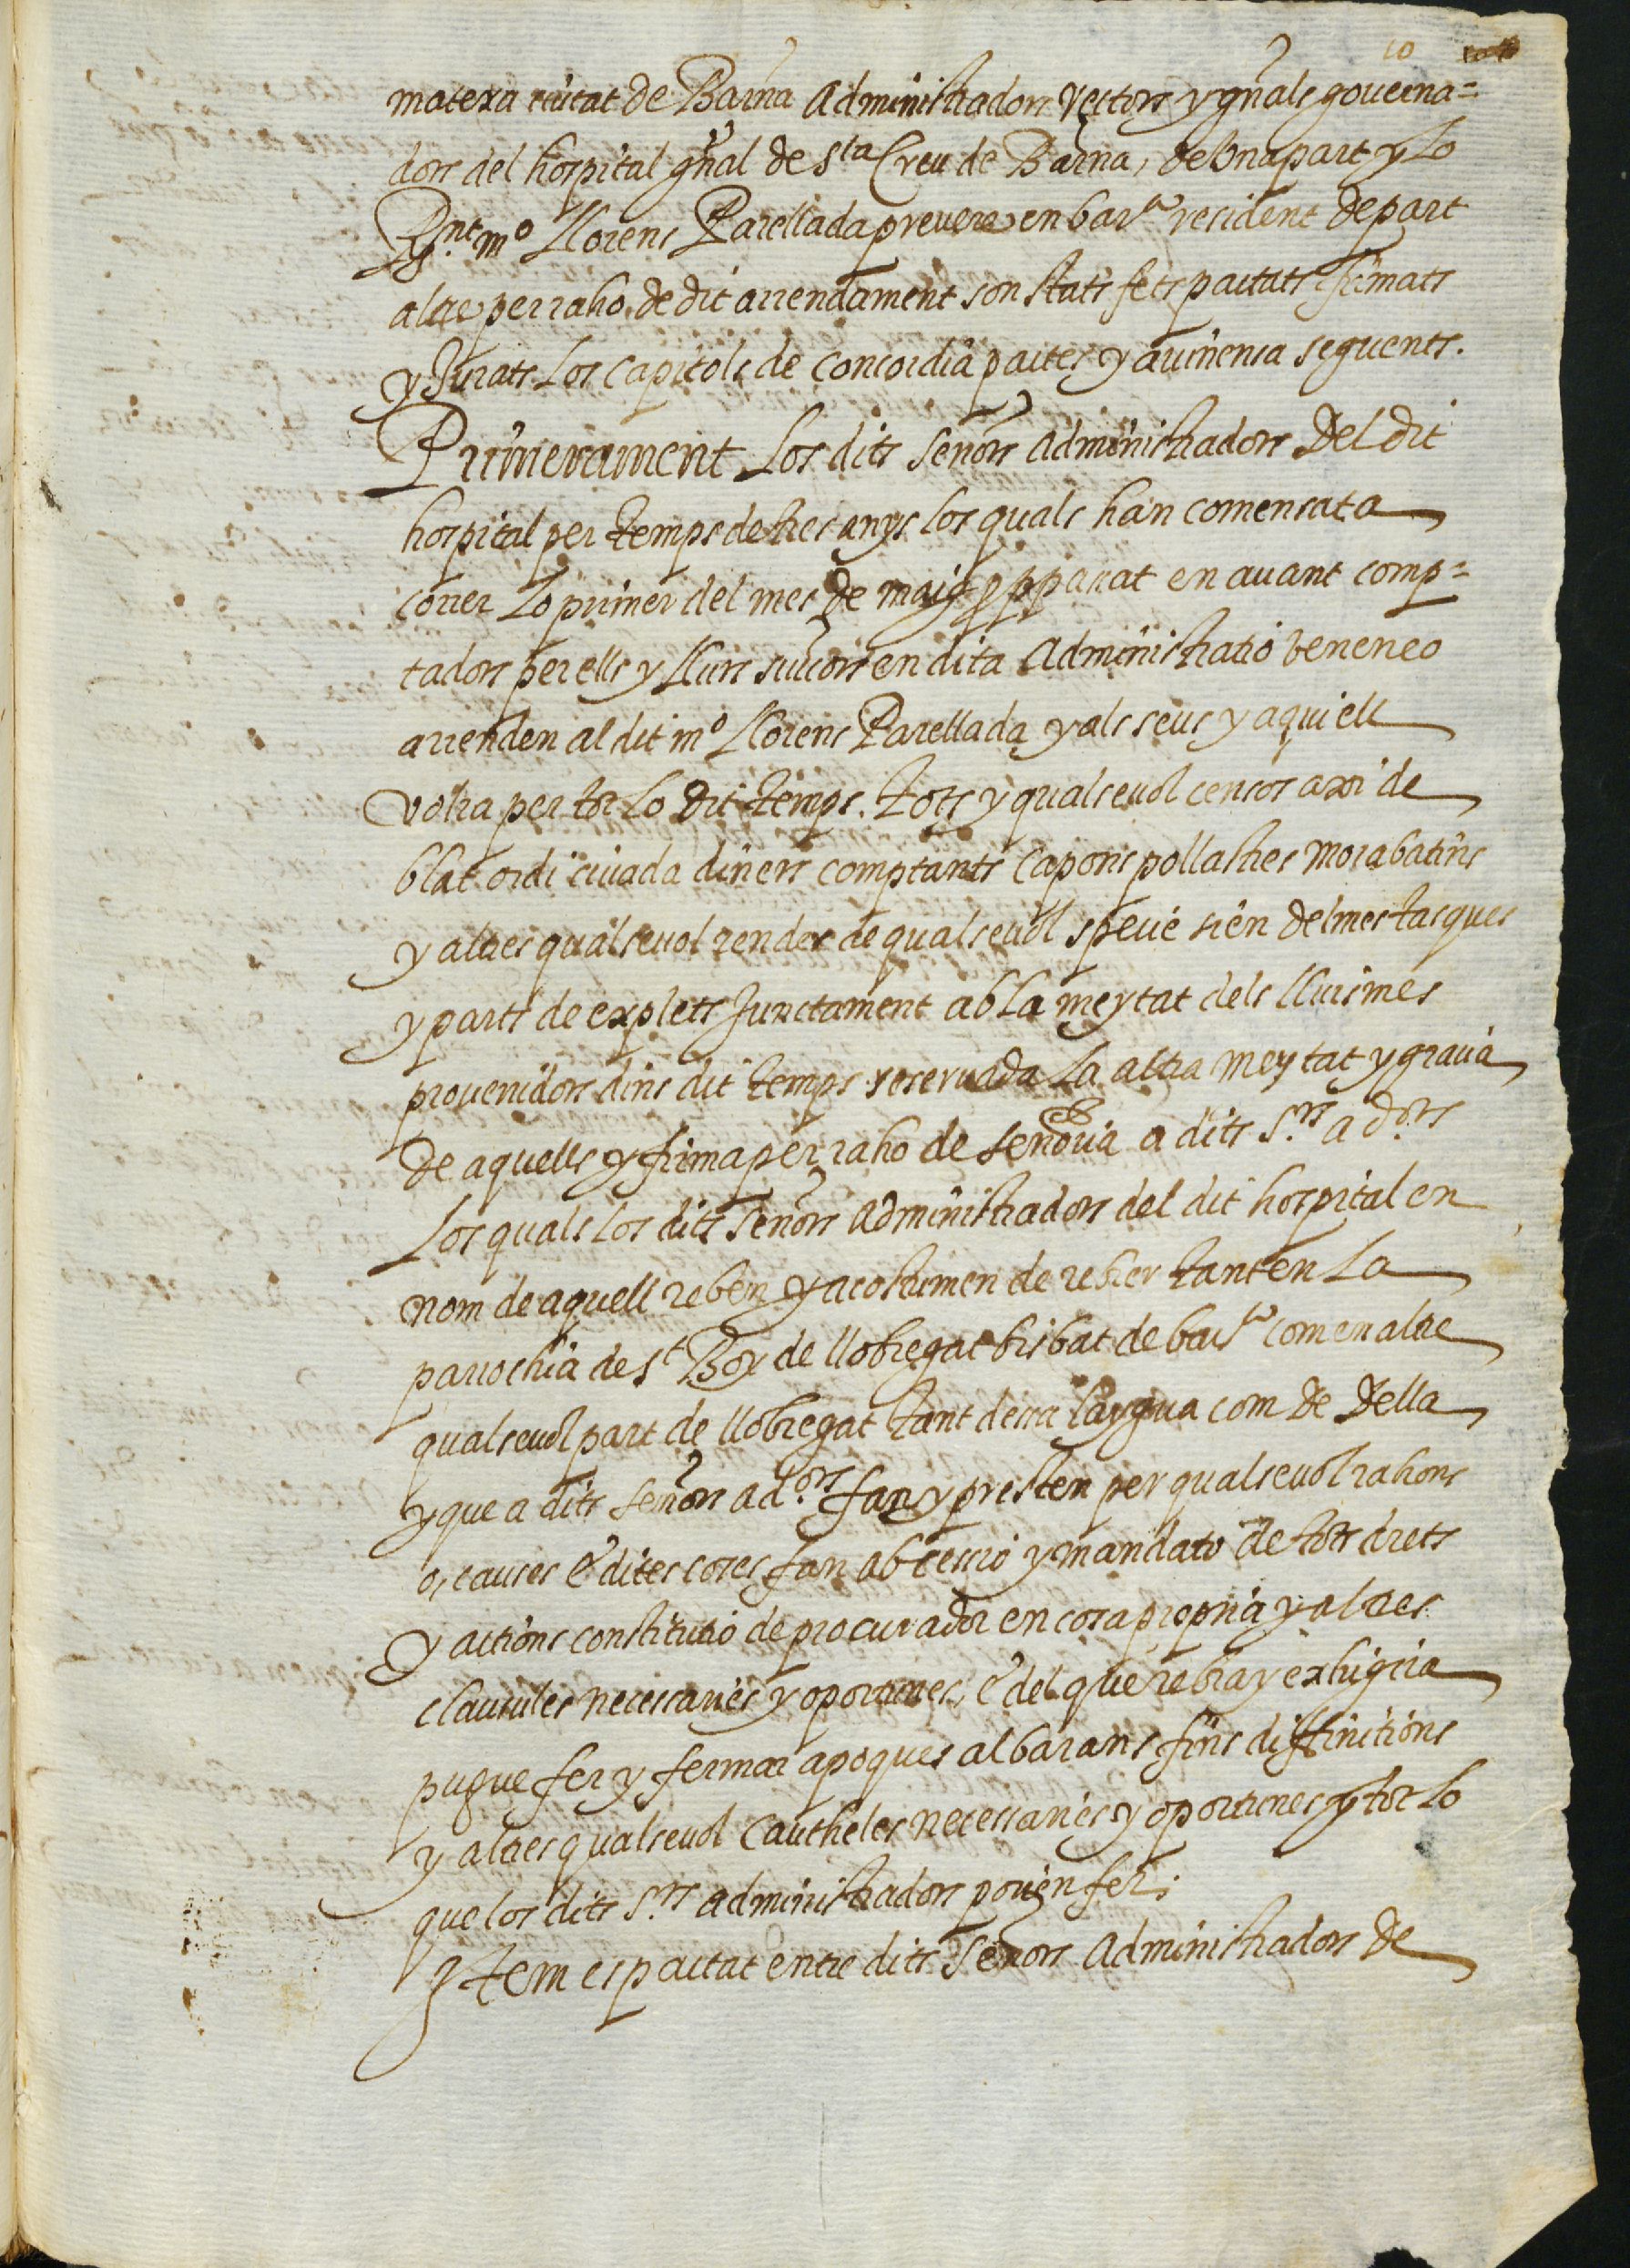 10
matexa ciutat de Barna Administradors rectors y gñals governa=
dors del hospital gñal de Sta Creu de Barna, de una part y Lo
Rnt mº Llorens Parellada prevere en bar.ª resident de part
altre per raho de dit arrendament son stats fets pactats firmats
y Jurats Los capitols de concordia pactes y avinensa seguents.
Primerament Los dits señors Administradors Del dit
hospital per temps de tres anys los quals han comensat a
correr Lo primer del mes de maig pppassat en avant comp=
tadors per ells y Llurs succors en dita Administratio venen e o
arrenden al dit mº Llorens Parellada y als seus y a qui ell
voldra per tot Lo dit temps. Tots y qualsevol censos axi de
blat ordi civada diners comptants Capons pollastres Morabatins
y altres qualsevol rendes de qualsevol specie sien delmes tasques
y parts de esplets Junctament ab La meytat dels lluismes
provenidors dins dit temps reservada La altra meytat y gracia
De aquells y firma per raho de señoria a dits S.rs ad.ors
Los quals los dits Señors Administradors del dit hospital en
nom de aquell reben y acostumen de rebrer tant en La
parrochia de St Boy de llobregat bisbat de bar.ª com en altre
qualsevol part de llobregat tant dessa laygua com de Della
y que a dits señors ad.ors fan y presten per qualsevol rahons
o, causes e dites coses fan ab cessio y mandato de tots drets
y actions constitutio de procurador en cosa propria y altres
clausules necessaries y oportunes, e del que rebra y exhigira
pugue fer y fermar apoques albarans fins diffinitions
y altres qualsevol Cautheles necessaries y oportunes y tot Lo
que los dits S.rs administradors porien fer;
Item es pactat entre dits Señors Administradors de